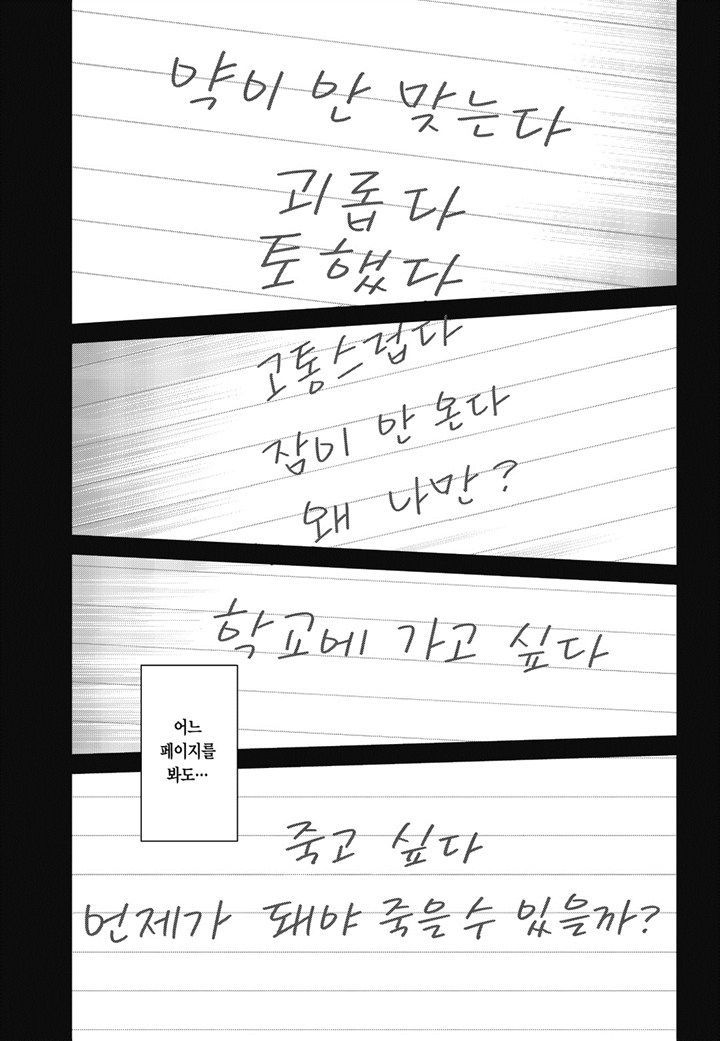 약이 안 맞는다
괴롭다
토했다
고통스럽다
잠이 안 온다
왜 나만?
학교에 가고 싶다
어느
페이지를
봐도…
죽고 싶다
언제가 돼야 죽을 수 있을까?